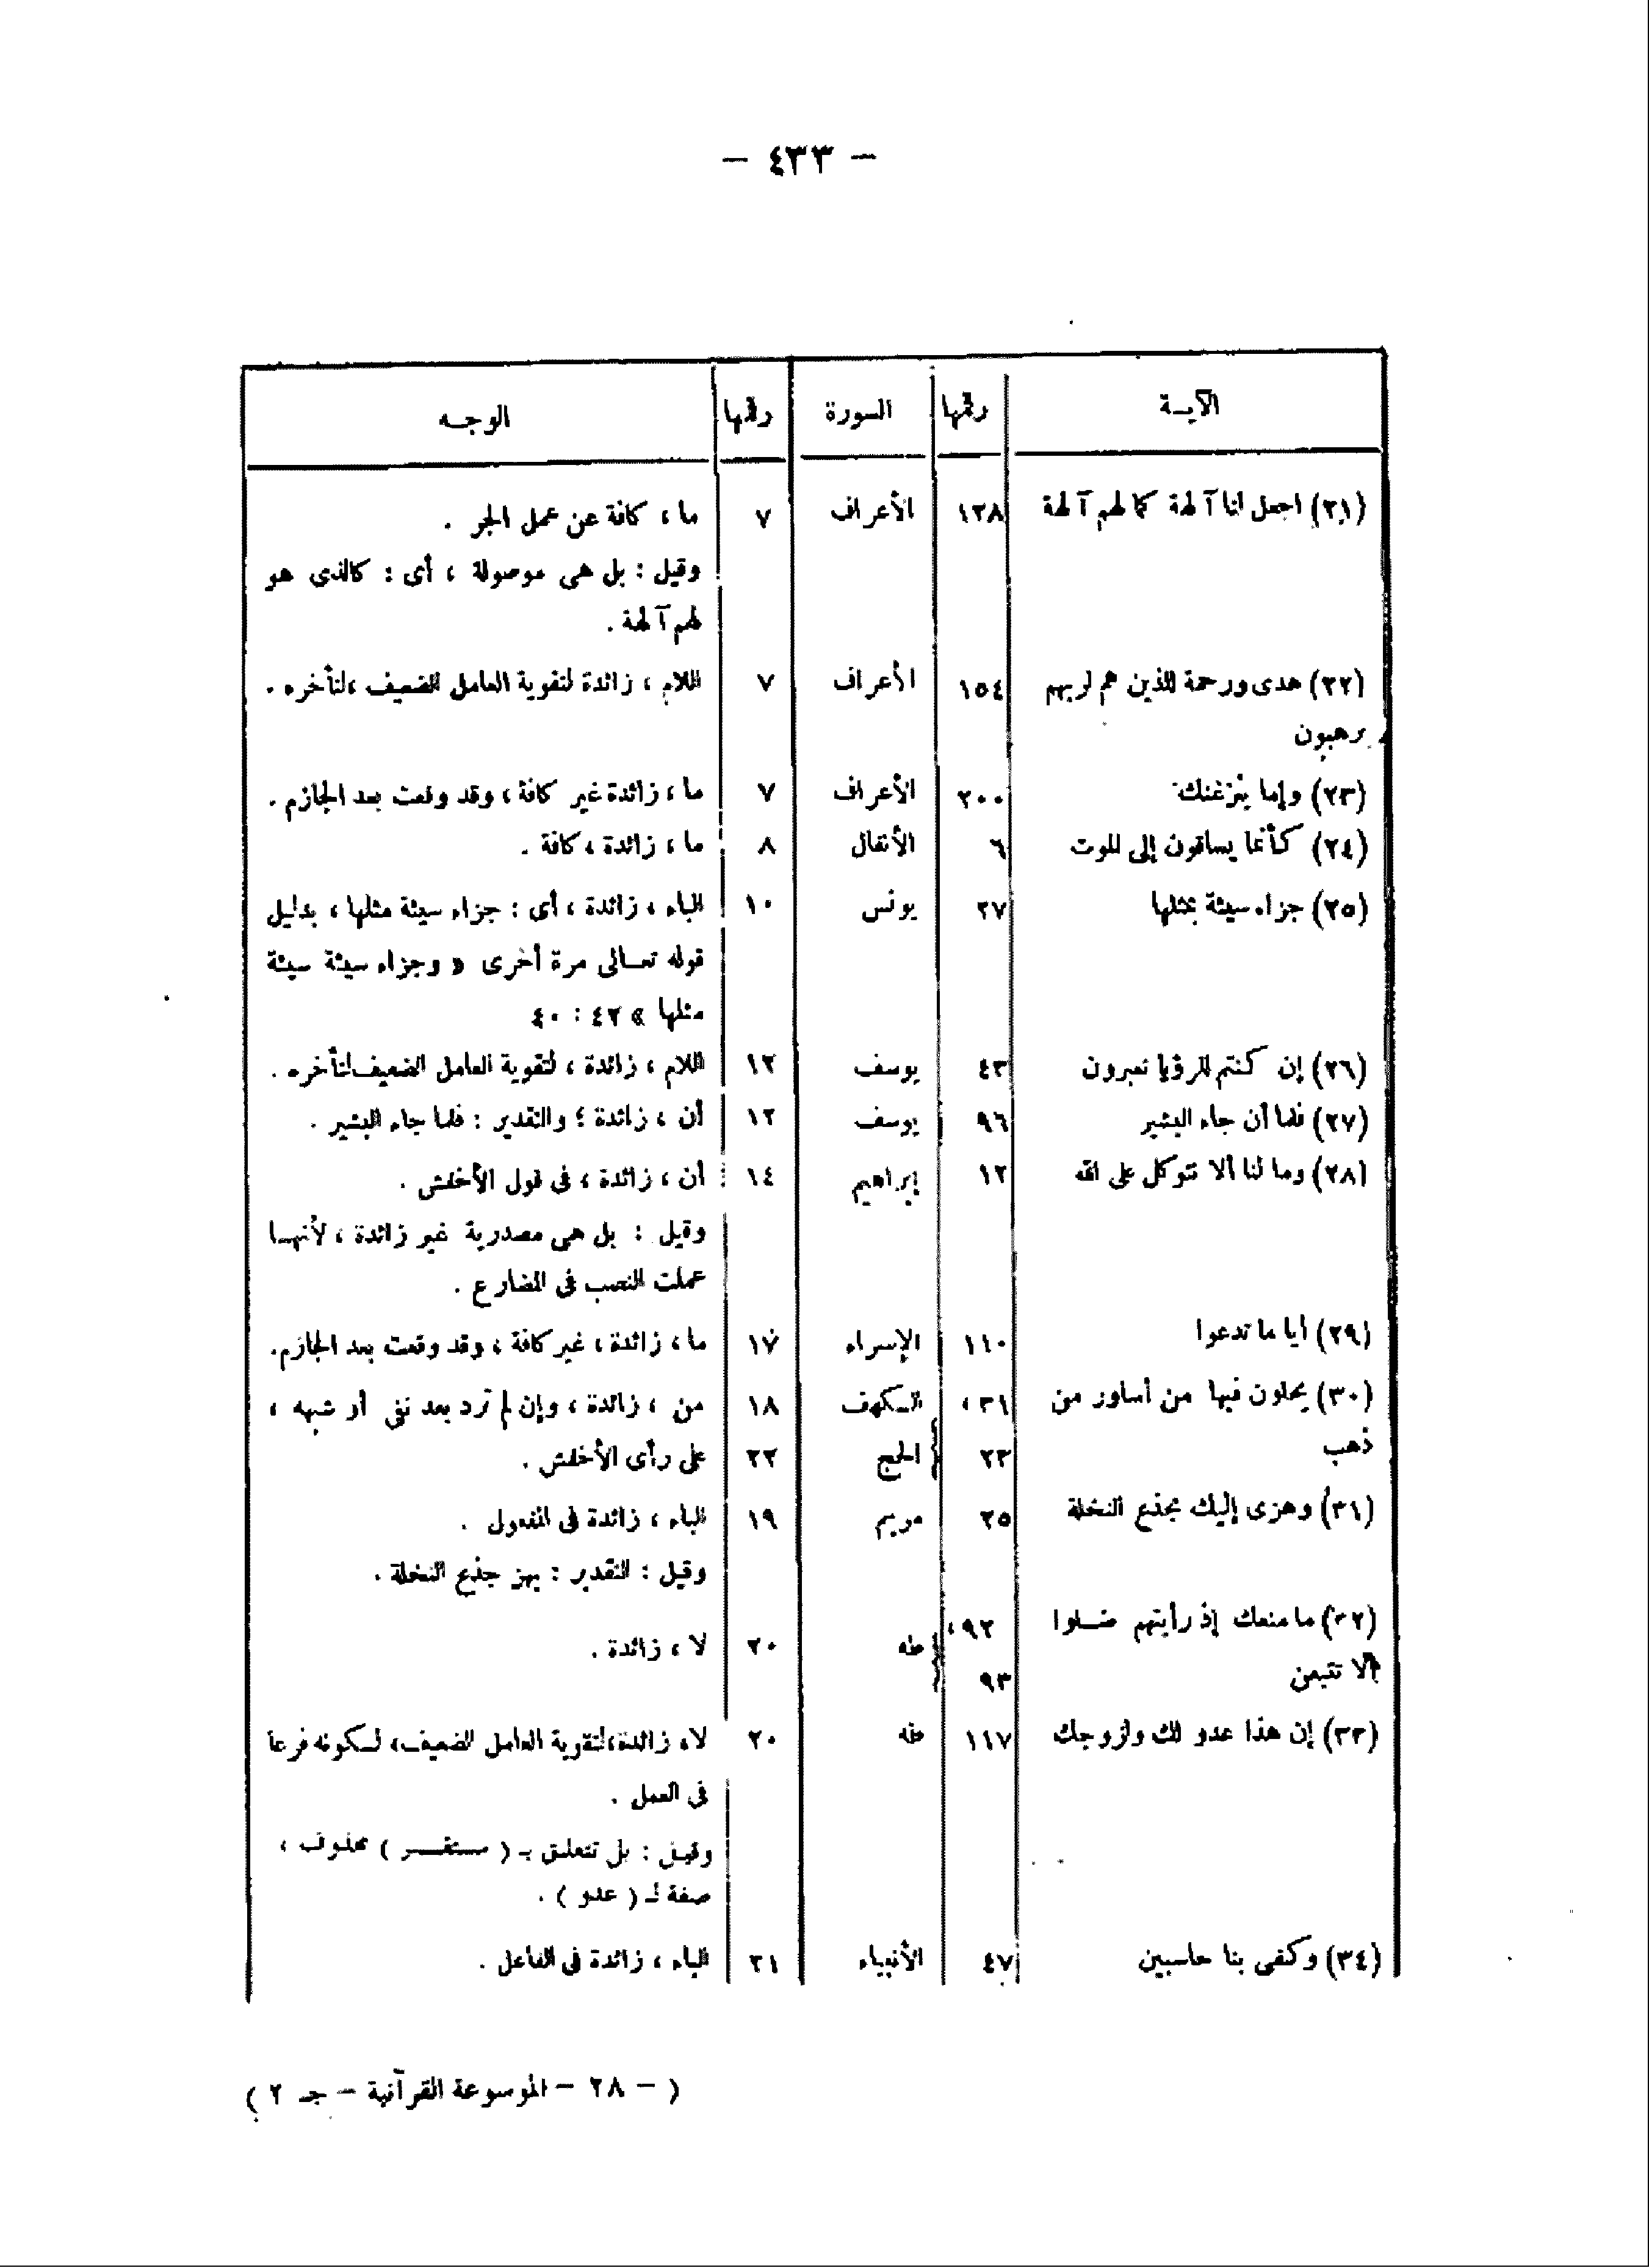 — ٤٣٣ —
الآيـة رقمها السورة رقمها الوجـه
(٢١) اجعل لنا آلهة كما لهم آلهة ١٣٨ الأعراف ٧ ما ، كافة عن عمل الجر .
وقيل : بل هى موصولة ، أى : كالذى هو
لهم آلهة .
(٢٢) هدى ورحمة للذين هم لربهم ١٥٤ الأعراف ٧ اللام ، زائدة لتقوية العامل الضعيف ، لتأخره .
يرهبون
(٢٣) وإما ينزغنك ٢٠٠ الأعراف ٧ ما ، زائدة غير كافة ، وقد وقعت بعد الجازم .
(٢٤) كأنما يساقون إلى الموت ٦ الأنفال ٨ ما ، زائدة ، كافة .
(٢٥) جزاء سيئة بمثلها ٢٧ يونس ١٠ الباء ، زائدة ، أى : جزاء سيئة مثلها ، بدليل
قوله تعـالى مرة أخرى « وجزاء سيئة سيئة
مثلها » ٤٢ : ٤٠
(٢٦) إن كنتم للرؤيا تعبرون ٤٣ يوسف ١٢ اللام ، زائدة ، لتقوية العامل الضعيف لتأخره .
(٢٧) فلما أن جاء البشير ٩٦ يوسف ١٢ أن ، زائدة ؛ والتقدير : فلما جاء البشير .
(٢٨) وما لنا ألا نتوكل على الله ١٢ إبراهيم ١٤ أن ، زائدة ، فى قول الأخفش .
وقيل : بل هى مصدرية غير زائدة ، لأنهـا
عملت النصب فى المضارع .
(٢٩) أيا ما تدعوا ١١٠ الإسراء ١٧ ما ، زائدة ، غير كافة ، وقد وقعت بعد الجازم .
(٣٠) يحلون فيها من أساور من ٣١ ، الكهف ١٨ من ، زائدة ، وإن لم ترد بعد نفى أو شبهه ،
ذهب ٢٣ الحج ٢٢ على رأى الأخفش .
(٣١) وهزى إليك بجذع النخلة ٢٥ مريم ١٩ الباء ، زائدة فى المفعول .
وقيل : التقدير : بهز جذع النخلة .
(٣٢) ما منعك إذ رأيتهم ضـلوا ٩٢ ، طه ٢٠ لا ، زائدة .
ألا تتبعن ٩٣
(٣٣) إن هذا عدو لك ولزوجك ١١٧ طه ٢٠ لا ، زائدة ، لتقوية العامل الضعيف ، لكونه فرعا
فى العمل .
وقيـل : بل تتعلق بـ ( مستقـر ) محذوف ،
صفة لـ ( عدو ) .
(٣٤) وكفى بنا حاسبين ٤٧ الأنبياء ٢١ الباء ، زائدة فى الفاعل .
( — ٢٨ — الموسوعة القرآنية — جـ ٢ )